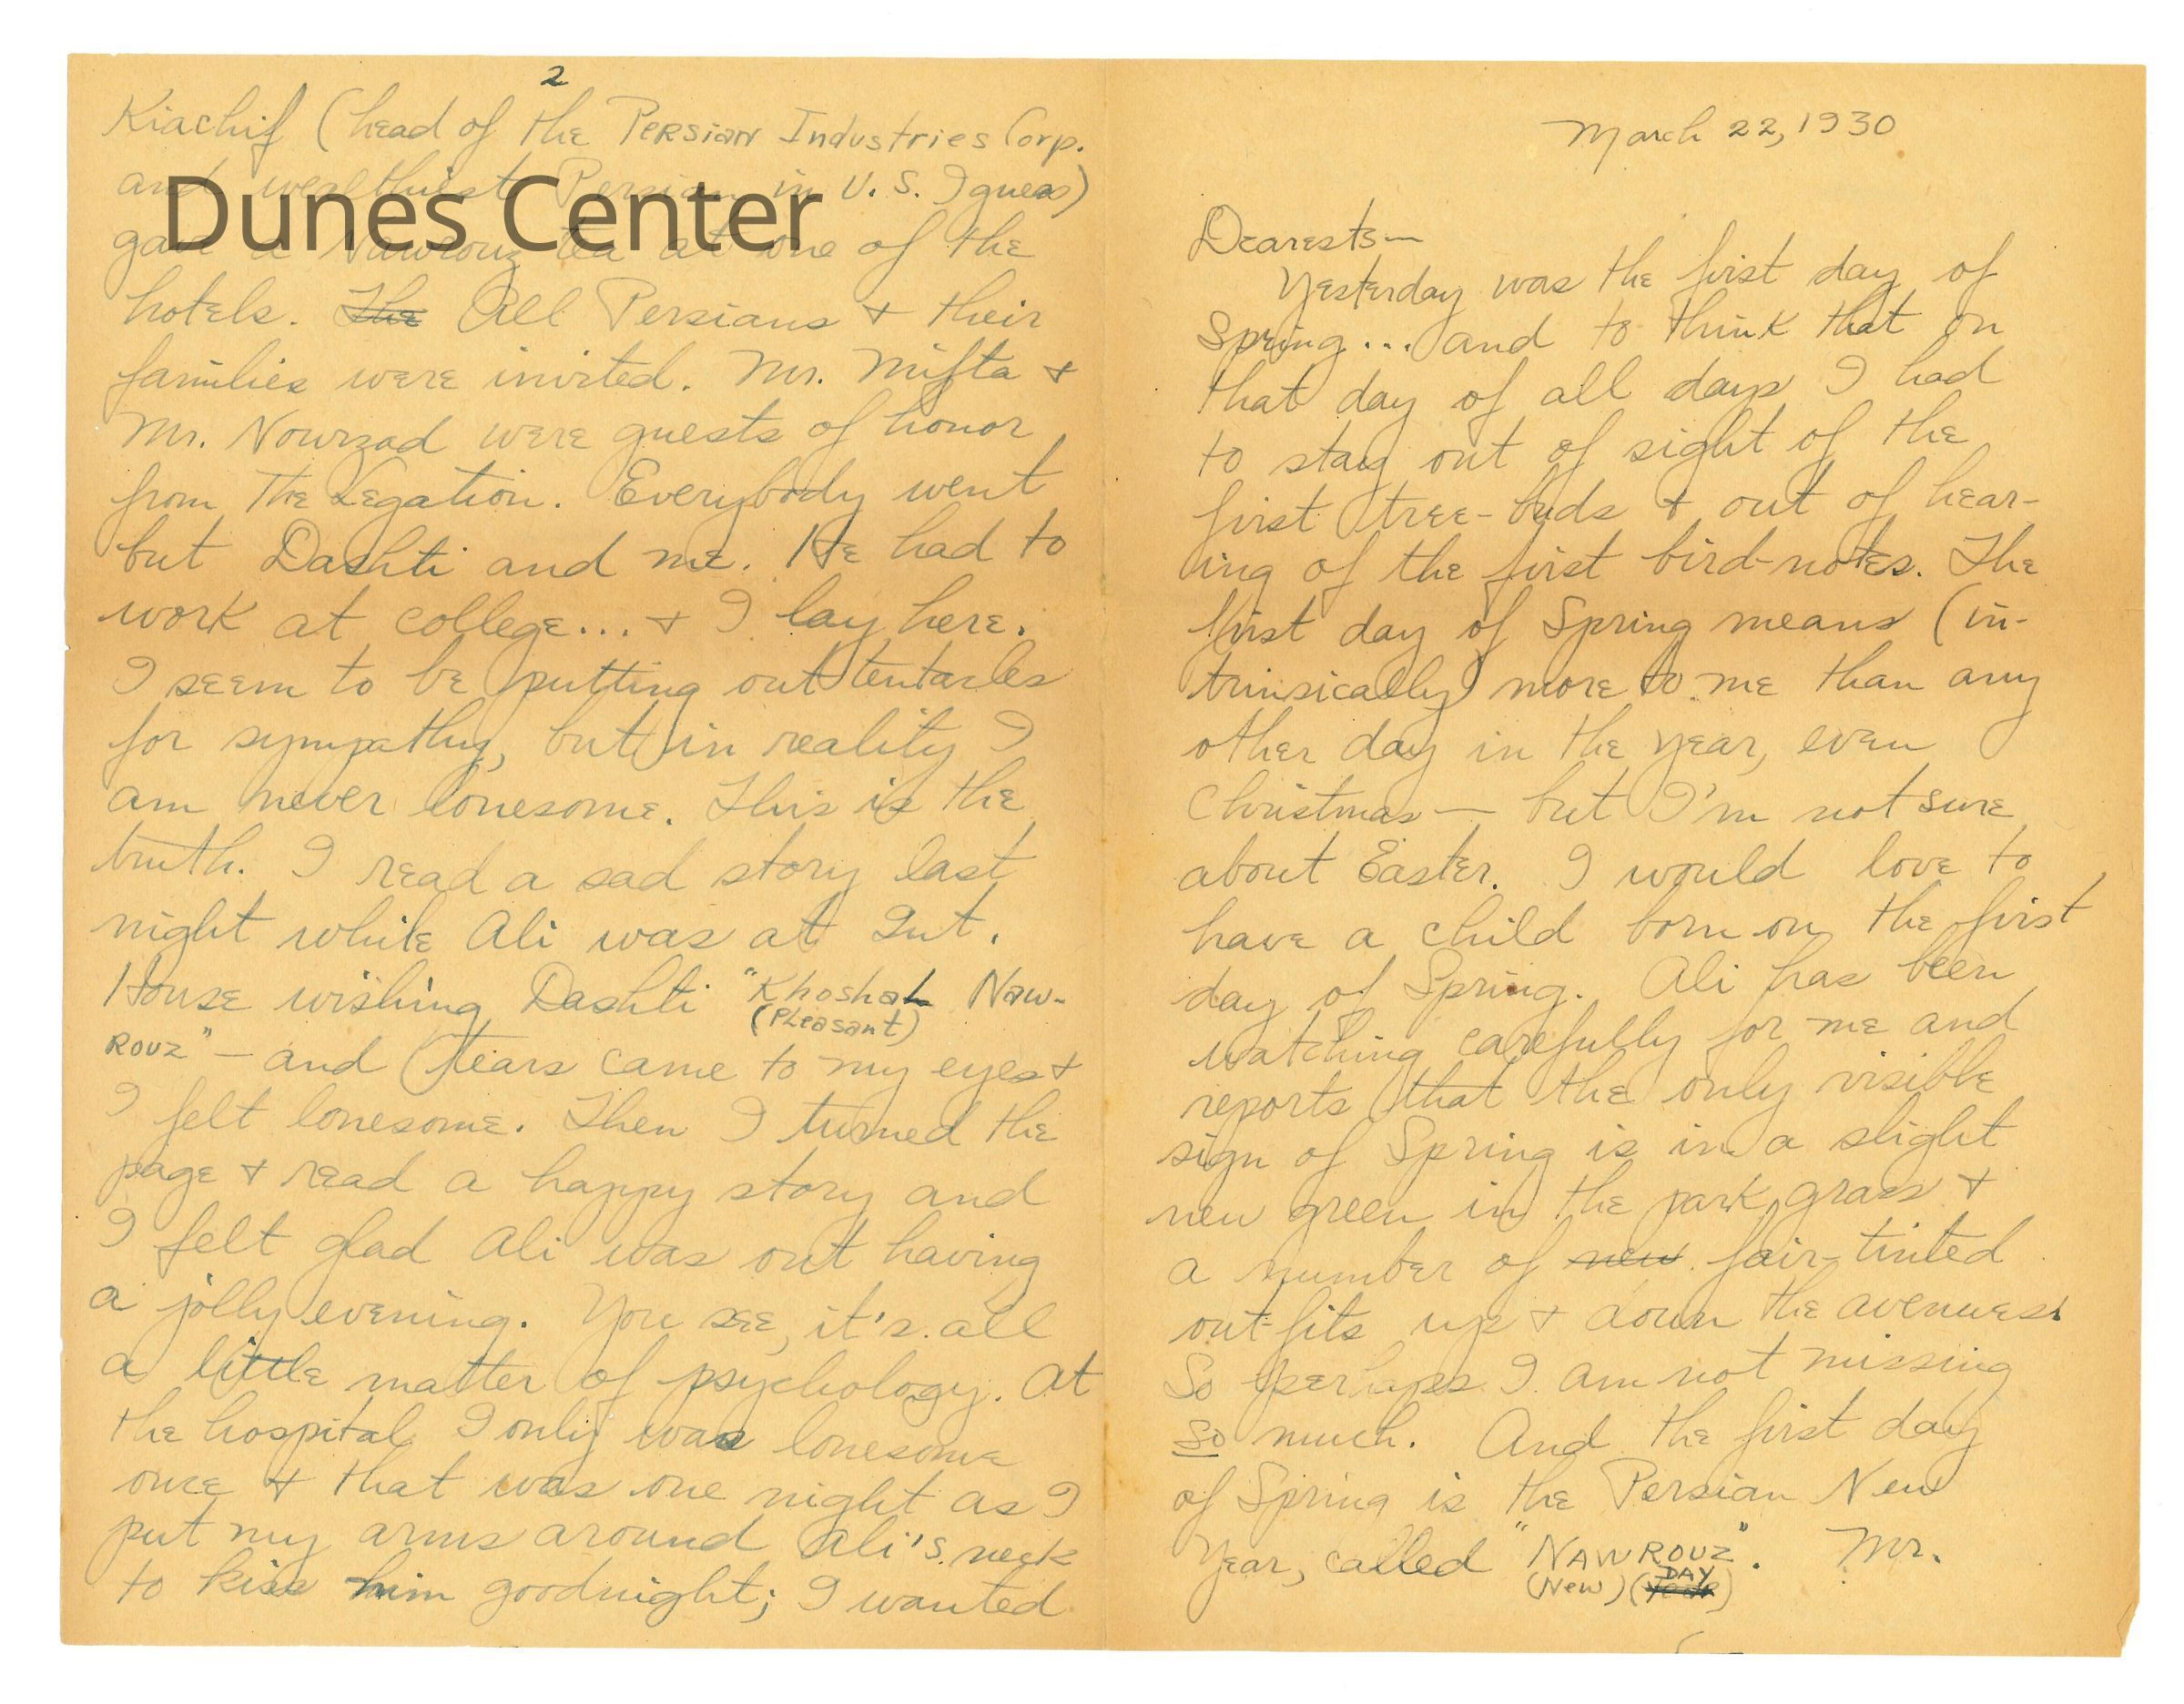 March 22, 1930
Dearests—
Yesterday was the first day of
Spring... and to think that on
that day of all days I had
to stay out of sight of the
first tree-buds & out of hear-
ing of the first bird-notes. The
first day of Spring means (in-
trinsically) more to me than any
other day in the year, even
Christmas — but I'm not sure
about Easter. I would love to
have a child born on the first
day of Spring. Ali has been
watching carefully for me and
reports that the only visible
sign of Spring is in a slight
new green in the park grass &
a number of new fair-tinted
out-fits up & down the avenues.
So perhaps I am not missing
so much. And the first day
of Spring is the Persian New
Year, called "NAWROUZ". Mr.
(New) (DAY)
2
Kiachif (head of the Persian Industries Corp.
and wealthiest Persian in U.S. I guess)
Dunes Center
gave a Nawrouz tea at one of the
hotels. The All Persians & their
families were invited. Mr. Mifta &
Mr. Nowrzad were guests of honor
from the Legation. Everybody went
but Dashti and me. He had to
work at college... & I lay here.
I seem to be putting out tentacles
for sympathy, but in reality I
am never lonesome. This is the
truth. I read a sad story last
night while Ali was at Int.
House wishing Dashti "Khoshal Naw-
(Pleasant)
ROUZ" — and tears came to my eyes &
I felt lonesome. Then I turned the
page & read a happy story and
I felt glad Ali was out having
a jolly evening. You see, it's all
a little matter of psychology. At
the hospital I only was lonesome
once & that was one night as I
put my arms around Ali's neck
to kiss him goodnight; I wanted